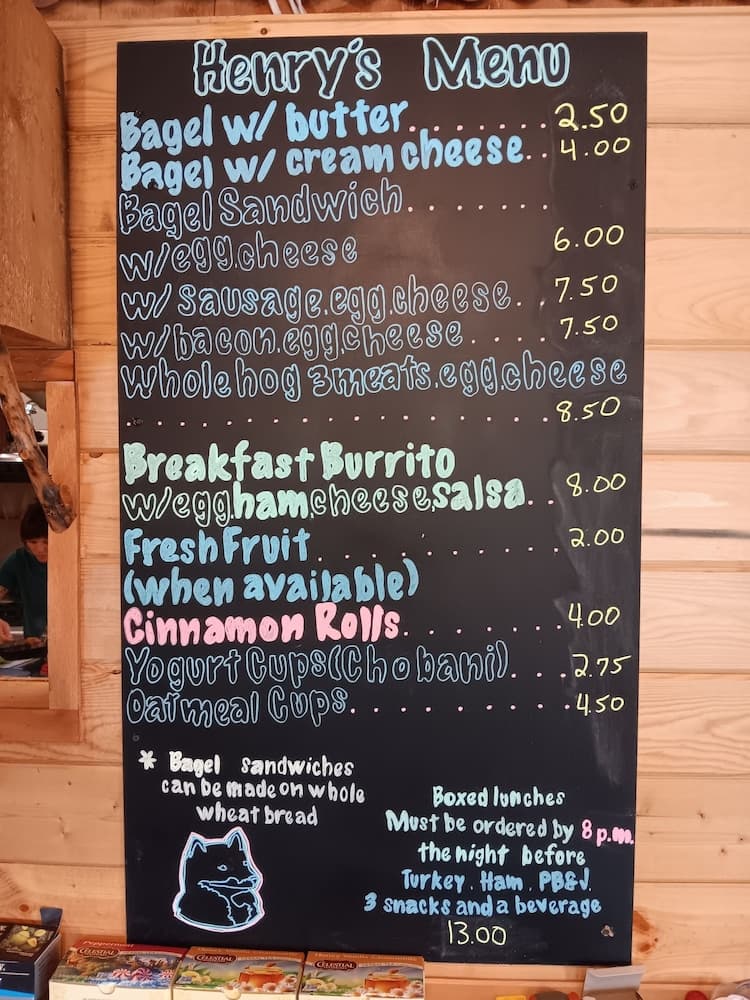 Henry's Menu
Bagel w/ butter.......2.50
Bagel w/ cream cheese..4.00
Bagel Sandwich.......
w/egg.cheese 6.00
w/ sausage.egg.cheese..7.50
w/bacon.egg.cheese.....7.50
Whole hog 3meats.egg.cheese
..................8.50
Breakfast Burrito
w/egg,ham,cheese,salsa..8.00
Fresh Fruit...........2.00
(when available)
Cinnamon Rolls.......4.00
Yogurt Cups(Chobani)...2.75
Oatmeal Cups.........4.50
* Bagel sandwiches
can be made on whole
wheat bread
Boxed lunches
Must be ordered by 8 p.m.
the night before
Turkey. Ham. PB&J.
3 snacks and a beverage
13.00
Peppermint
CELESTIAL
CELESTIAL
CELESTIAL